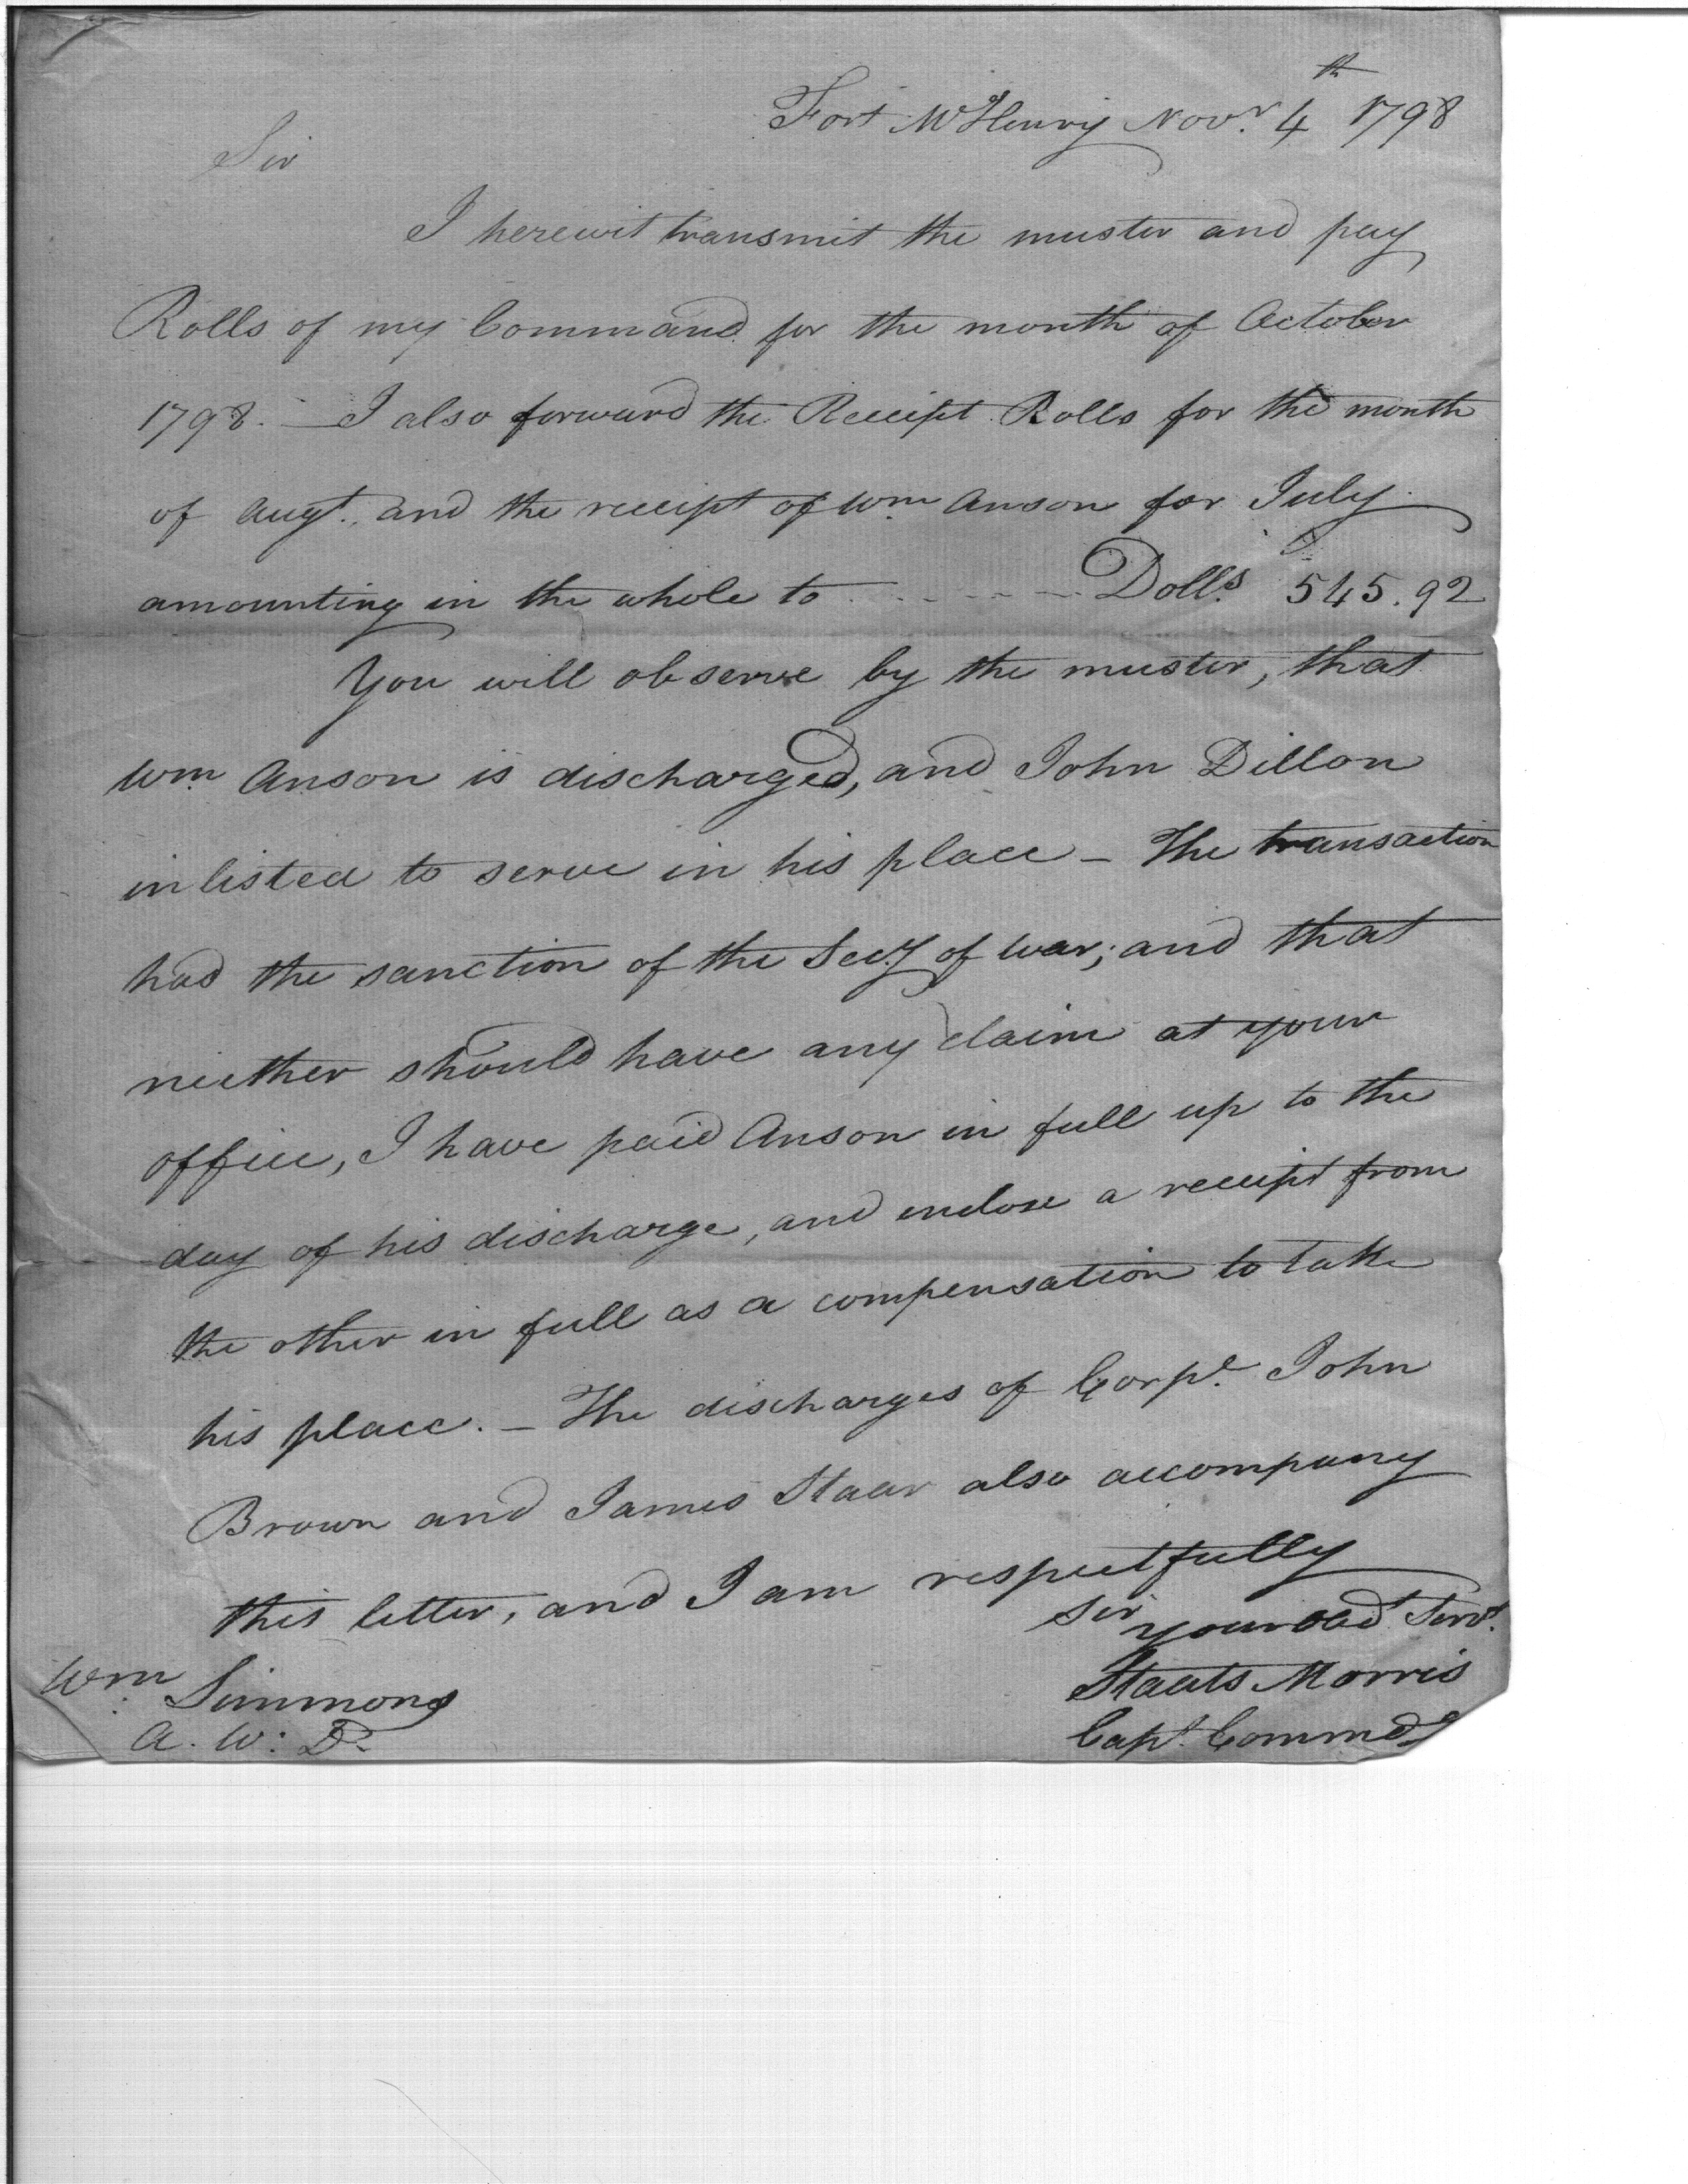 Fort McHenry Novr. 4th 1798
Sir
I herewit transmit the muster and pay
Rolls of my Command for the month of October
1798. — I also forward the Receipt Rolls for the month
of Augt. and the receipt of Wm Anson for July
amounting in the whole to - - - - - Dolls. 545.92
You will observe by the muster, that
Wm Anson is discharged, and John Dillon
inlisted to serve in his place — The transaction
had the sanction of the Secy of War; and that
neither should have any claim at your
office, I have paid Anson in full up to the
day of his discharge, and enclose a receipt from
the other in full as a compensation to take
his place. — The discharges of Corpl. John
Brown and James Staar also accompany
this letter, and I am respectfully
Sir your Obd. Servt.
Staats Morris
Capt. Commdg
Wm. Simmons
A. W: D.